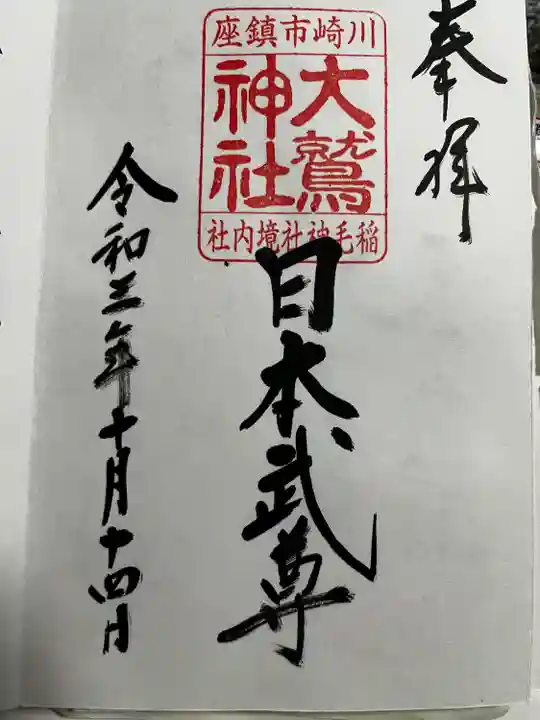 奉拝
川崎市鎮座
大鷲
神社
稲毛神社境内社
日本武尊
令和三年十月十四日